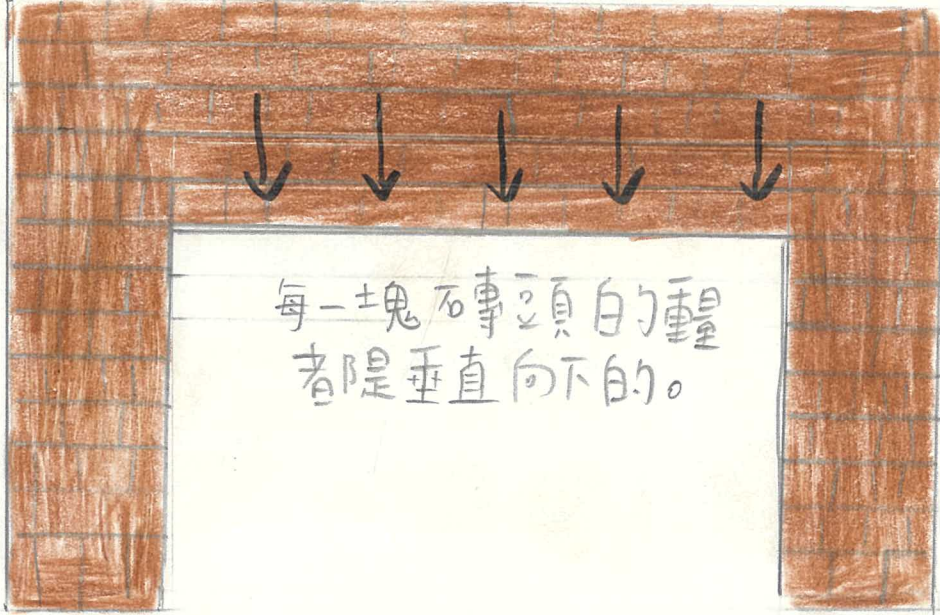 每一塊磚頭的重量
都是垂直向下的。